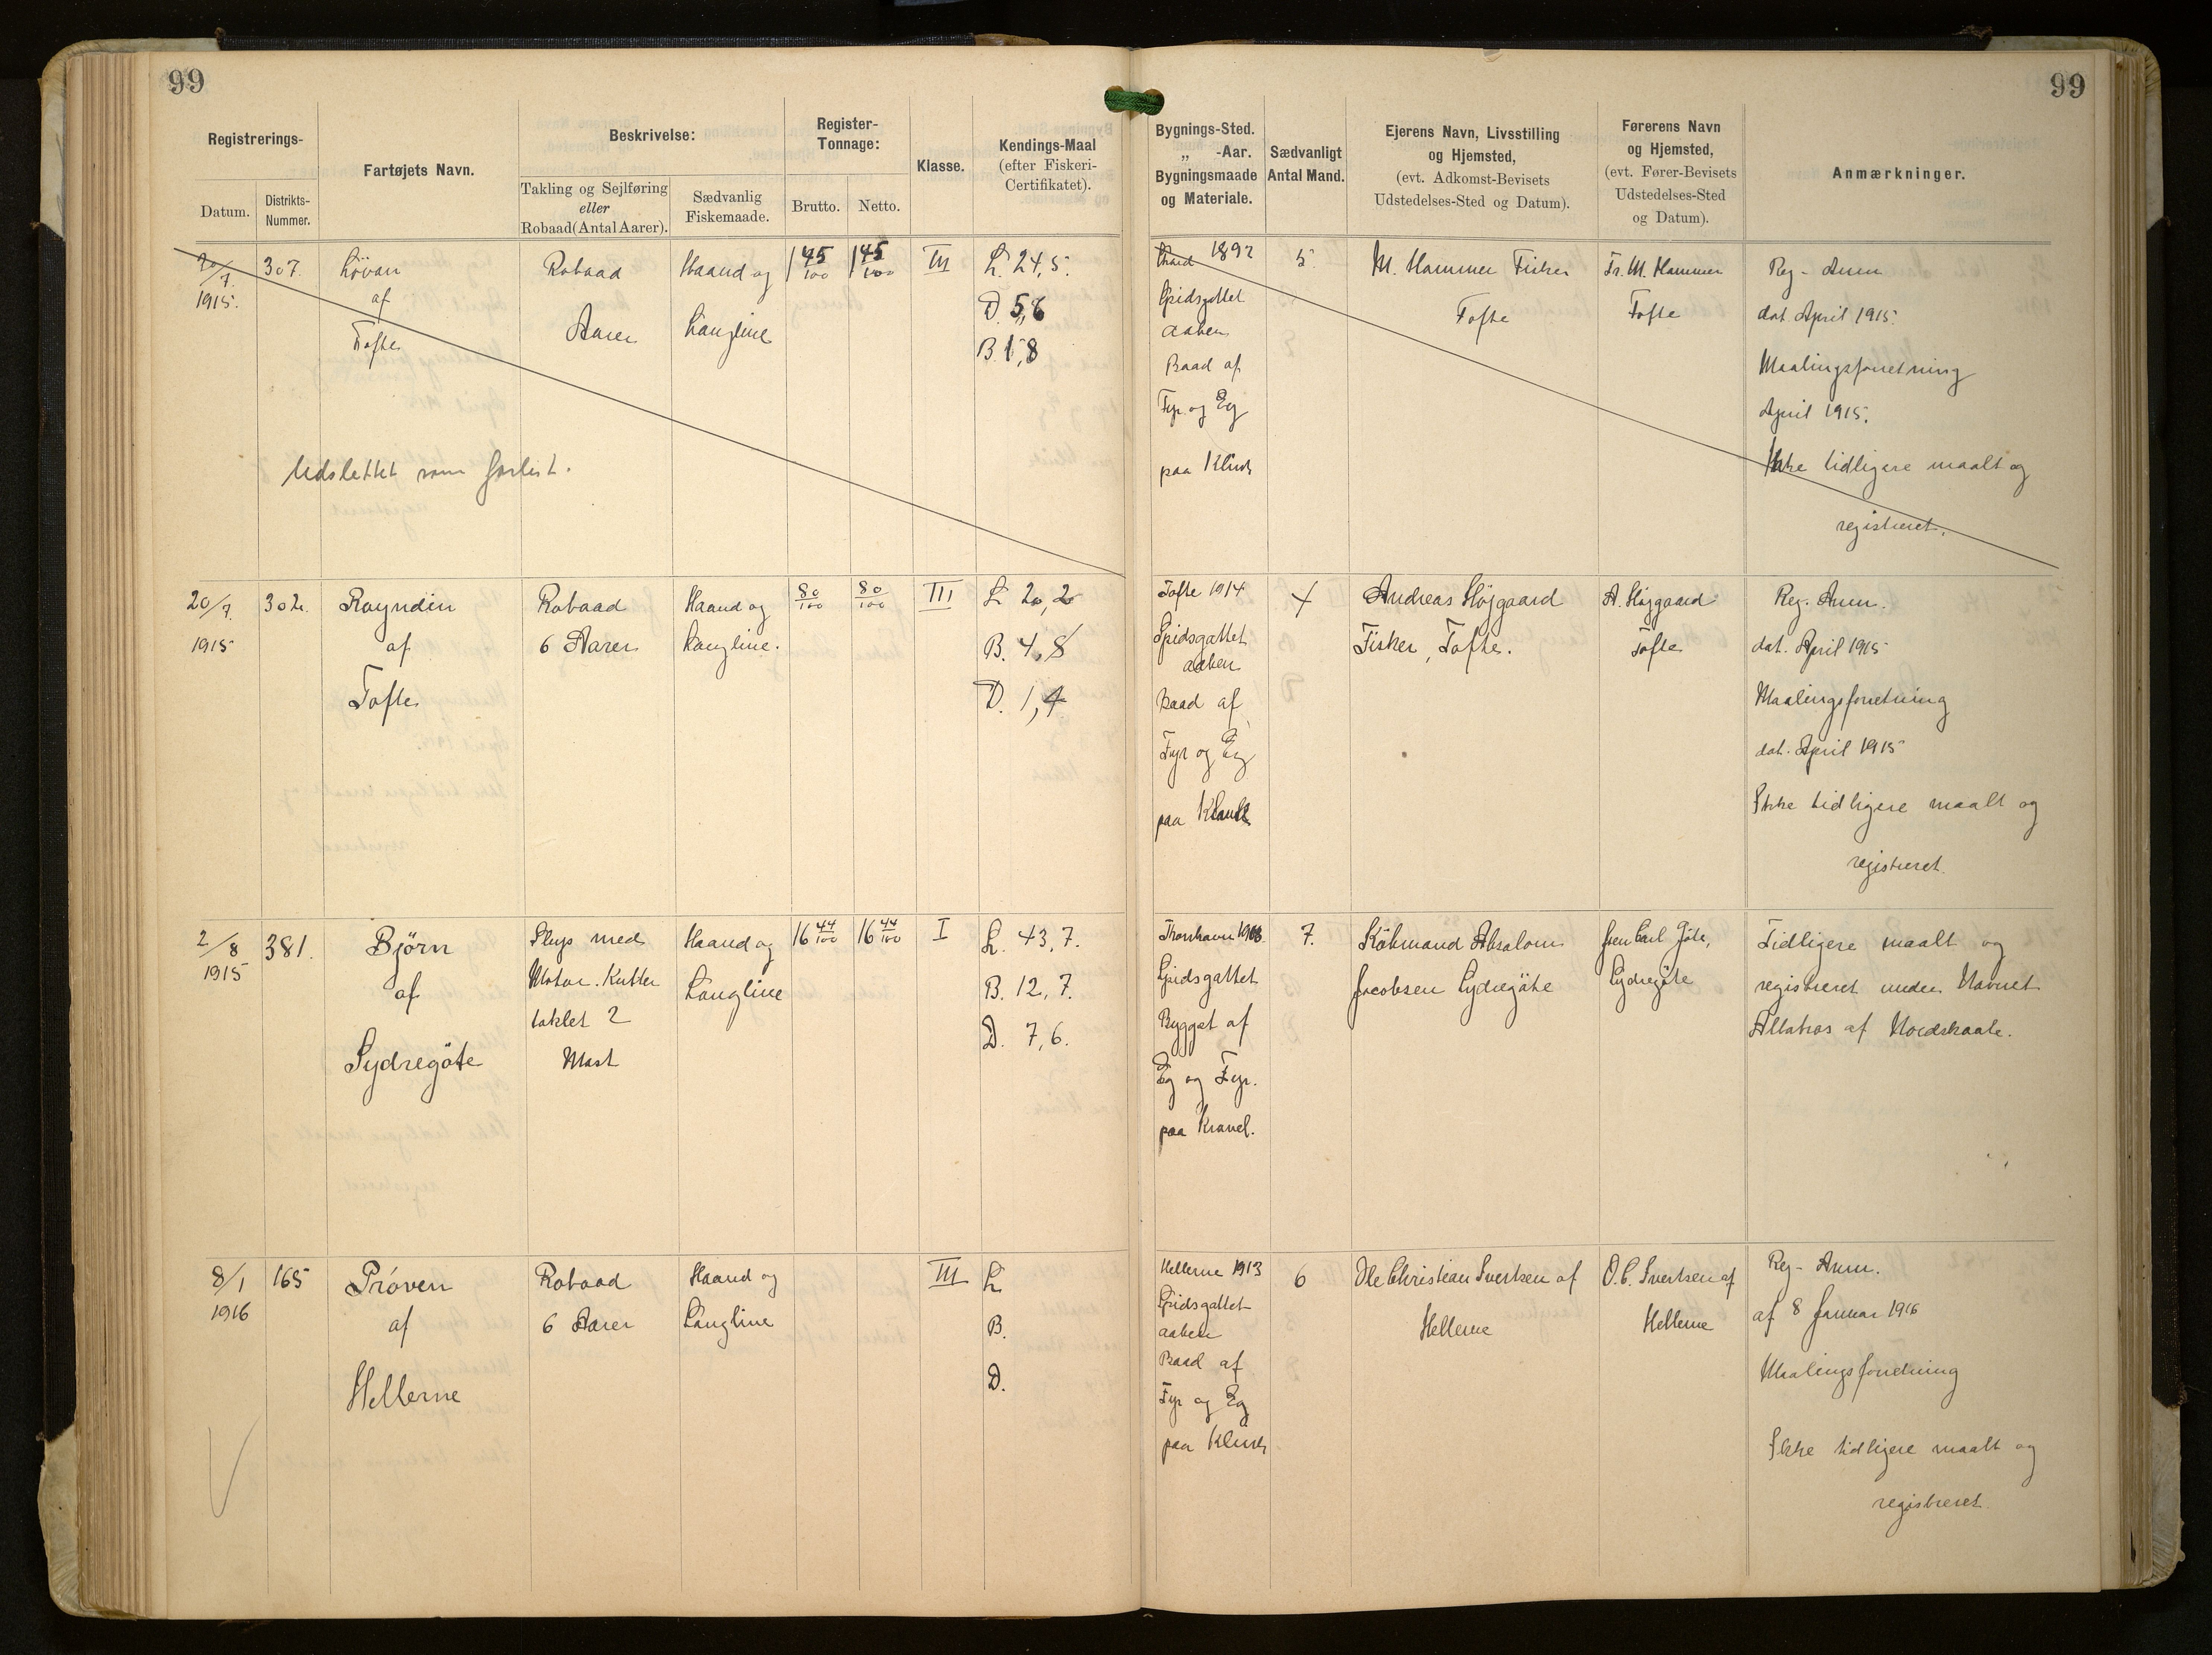 99
99
Registrerings-
Datum.
Distrikts-
Nummer.
Fartøjets Navn.
Beskrivelse:
Takling og Sejlføring
eller
Robaad (Antal Aarer).
Sædvanlig
Fiskemaade.
Register-
Tonnage:
Brutto.
Netto.
Klasse.
Kendings-Maal
(efter Fiskeri-
Certifikatet).
Bygnings-Sted.
„ -Aar.
Bygningsmaade
og Materiale.
Sædvanligt
Antal Mand.
Ejerens Navn, Livsstilling
og Hjemsted,
(evt. Adkomst-Bevisets
Udstedelses-Sted og Datum).
Førerens Navn
og Hjemsted,
(evt. Fører-Bevisets
Udstedelses-Sted
og Datum).
Anmærkninger.
20/7.
1915.
307.
Lövan
af
Tofte
Robaad
Aarer
Haand og
Langline
1 45/100
1 45/100
III
L. 24,5.
D. 5,6
B. 1,8
1892
Spidsgattet
aaben
Baad af
Fyr og Eg
paa Klink
5
M. Hammer Fisker
Tofte
Fr. M. Hammer
Tofte
Reg - Anm
dat April 1915.
Maalingsforretning
April 1915.
Ikke tidligere maalt og
registreret.
Udslettet som forlist.
20/7.
1915
302.
Royndin
af
Tofte
Robaad
6 Aarer
Haand og
Langline.
80/100
80/100
III
L 20,20
B. 4,8
D. 1,4
Tofte 1914
Spidsgattet
aaben
Baad af
Fyr og Eg
paa Klink
4
Andreas Höjgaard
Fisker, Tofte.
A. Höjgaard
Tofte
Reg. Anm.
dat. April 1915
Maalingsforretning
dat. April 1915
Ikke tidligere maalt og
registreret.
2/8
1915
381.
Björn
af
Sydregöte
Slup med
Motor. Kutter
taklet 2
Mast
Haand og
Langline
16 44/100
16 44/100
I
L. 43,7.
B. 12,7.
D. 7,6.
Thorshavn
Spidsgattet
Bygget af
Eg og Fyr.
paa Kravel.
7.
Köbmand Absalom
Jacobsen Sydregöte
Joen Carl Göte,
Sydregöte
Tidligere maalt og
registreret under Navnet
Albatros af Nordskaale.
8/1
1916
165
Pröven
af
Hellerne
Robaad
6 Aarer
Haand og
Langline
III
L.
B.
D.
Hellerne 1913
Spidsgattet
aaben
Baad af
Fyr og Eg
paa Klink
6
Ole Christian Svertsen af
Hellerne
O. C. Svertsen af
Hellerne
Reg - Anm.
af 8 Januar 1916
Maalingsforretning
Ikke tidligere maalt og
registreret.